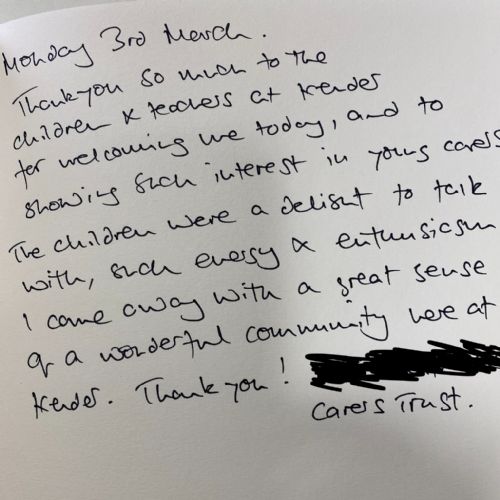 Monday 3rd March.
Thank you so much to the
children & teachers at Kender
for welcoming me today, and to
showing such interest in young carers
The children were a delight to talk
with, such energy & enthusiasm
I came away with a great sense
of a wonderful community here at
Kender. Thank you!
Carers Trust.